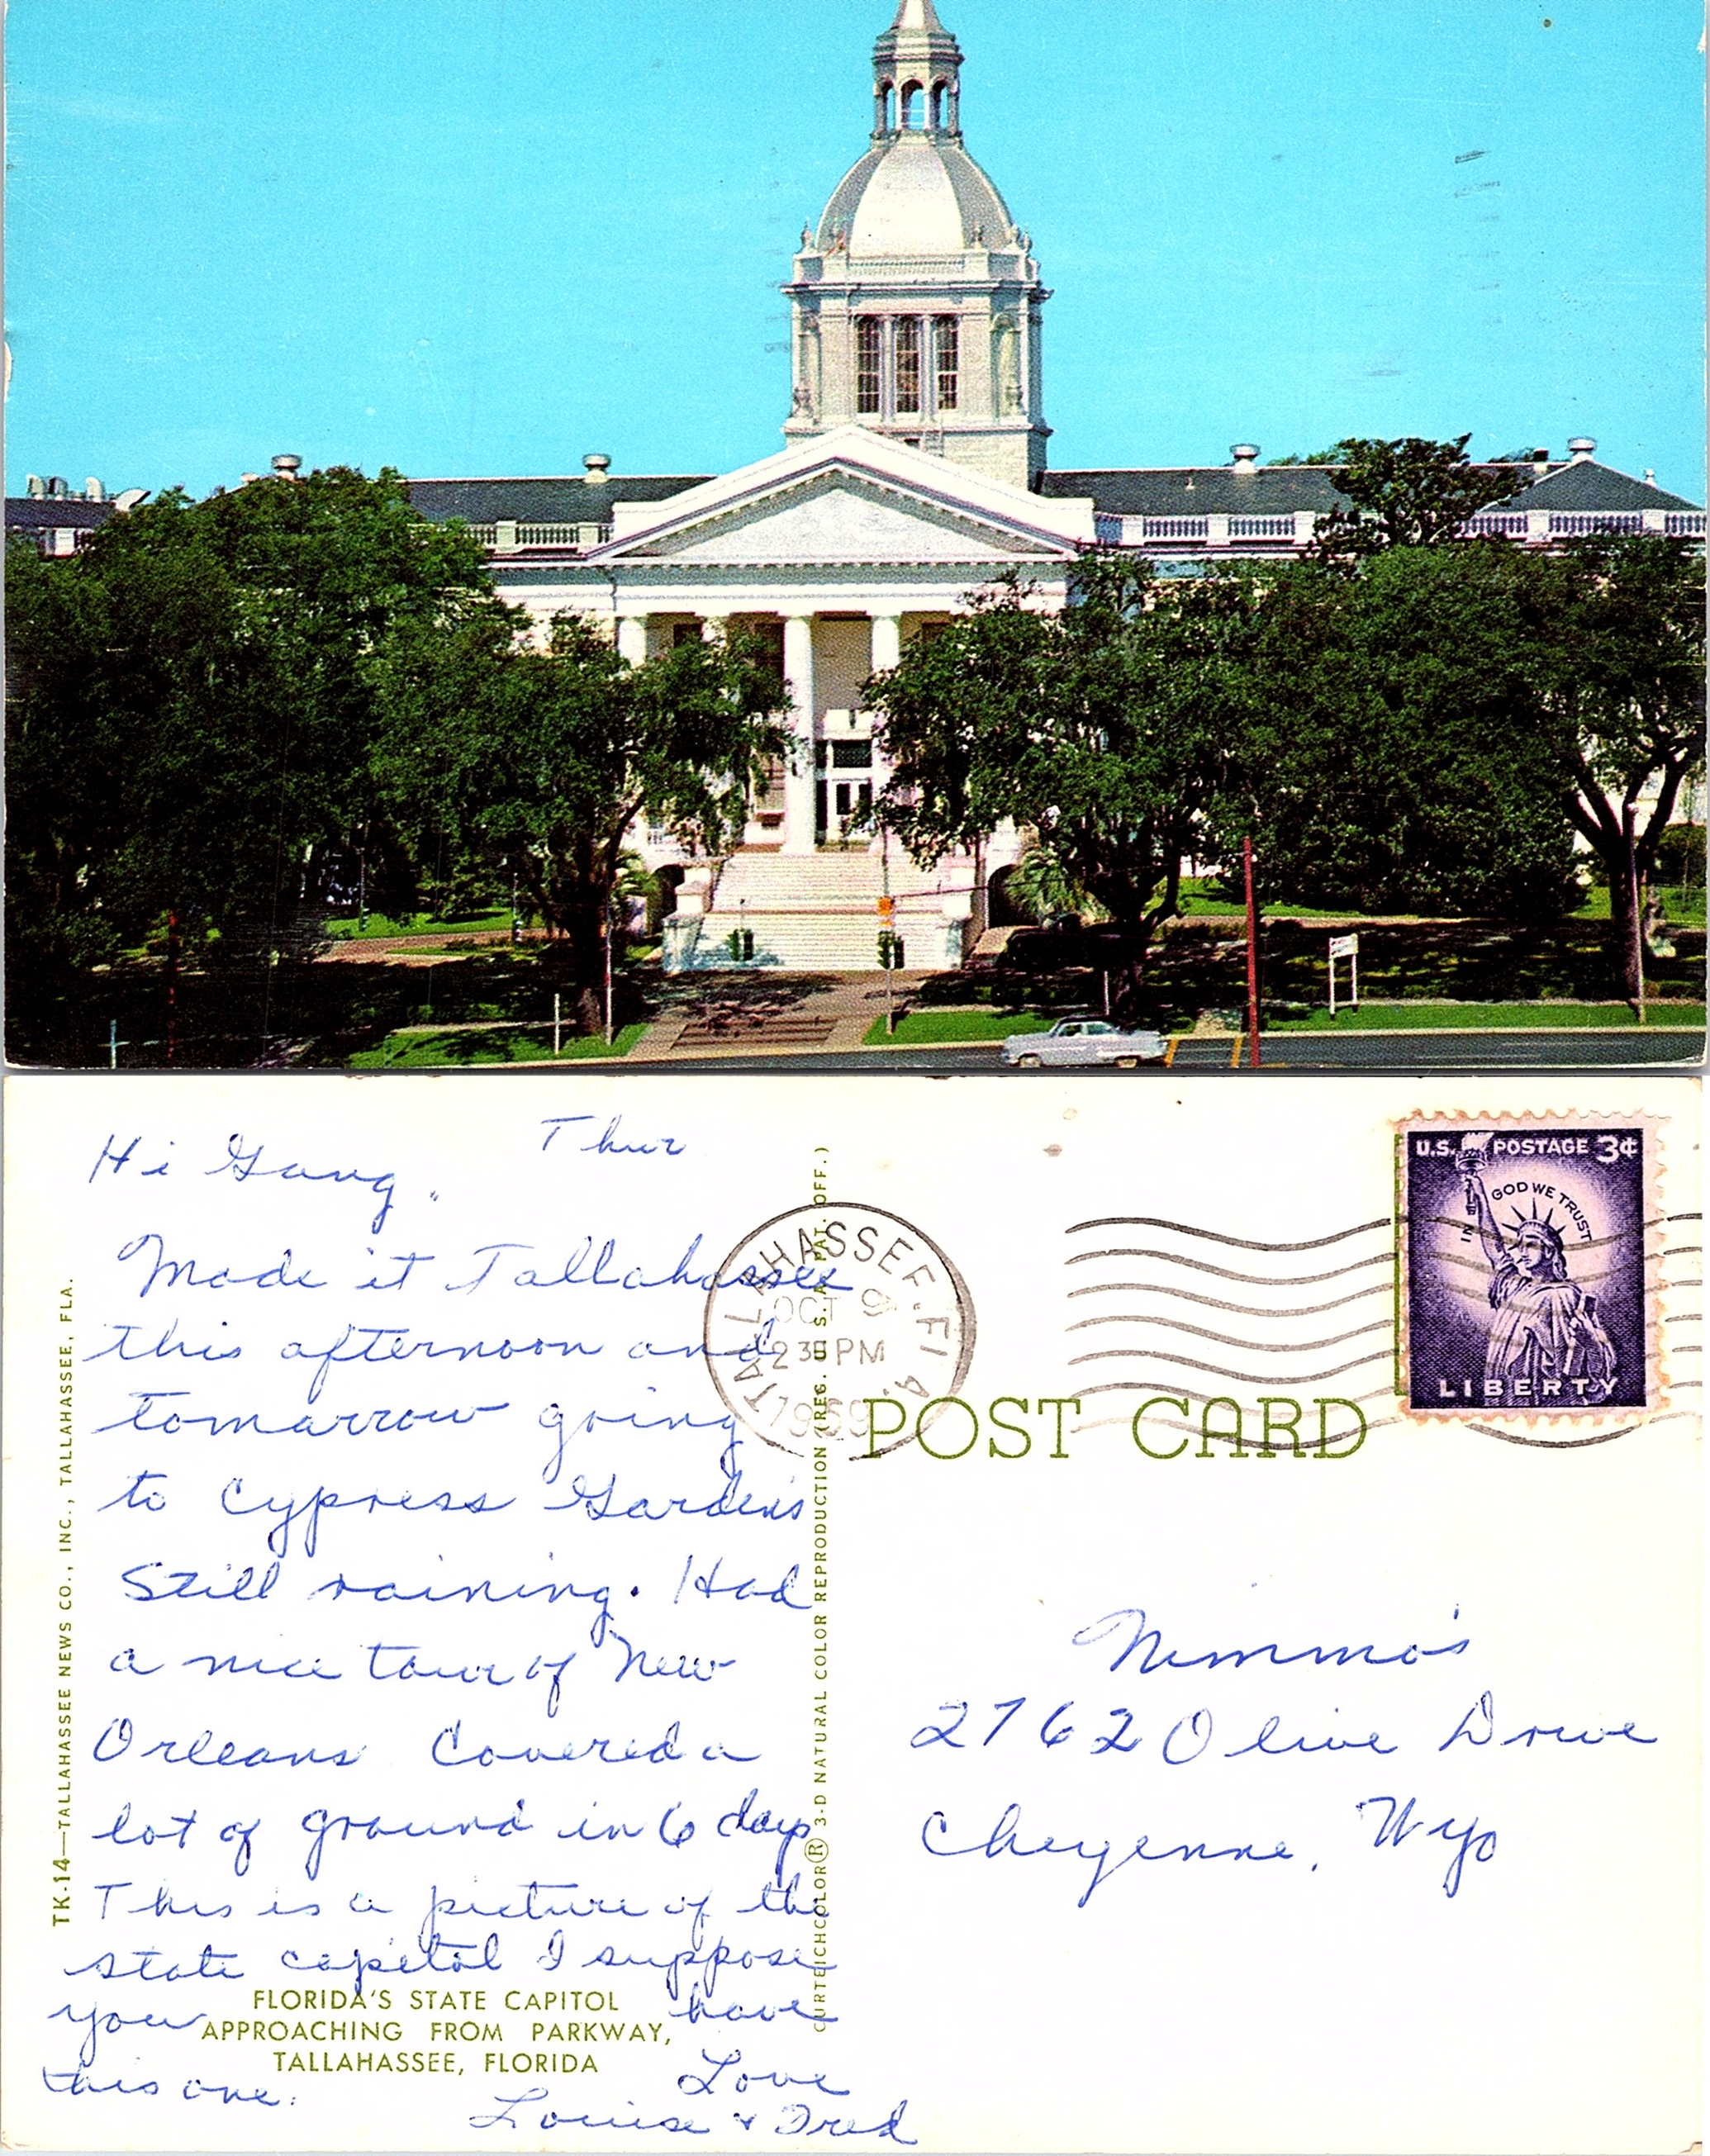 Thur
Hi Gang,
Made it Tallahassee
this afternoon and
tomarrow going
to Cypress Gardens
Still raining. Had
a nice tour of New
Orleans Covered a
lot of ground in 6 days
This is a picture of the
state capitol I suppose
you have
this one.
Love
Louise & Fred
FLORIDA'S STATE CAPITOL
APPROACHING FROM PARKWAY,
TALLAHASSEE, FLORIDA
TK-14—TALLAHASSEE NEWS CO., INC., TALLAHASSEE, FLA.
CURTEICHCOLOR® 3-D NATURAL COLOR REPRODUCTION (REG. U.S.A. PAT. OFF.)
TALLAHASSEE, FLA.
OCT 9
2 30 PM
1959
U.S. POSTAGE 3¢
IN GOD WE TRUST
LIBERTY
POST CARD
Nimmo's
2762 Olive Drive
Cheyenne, Wyo